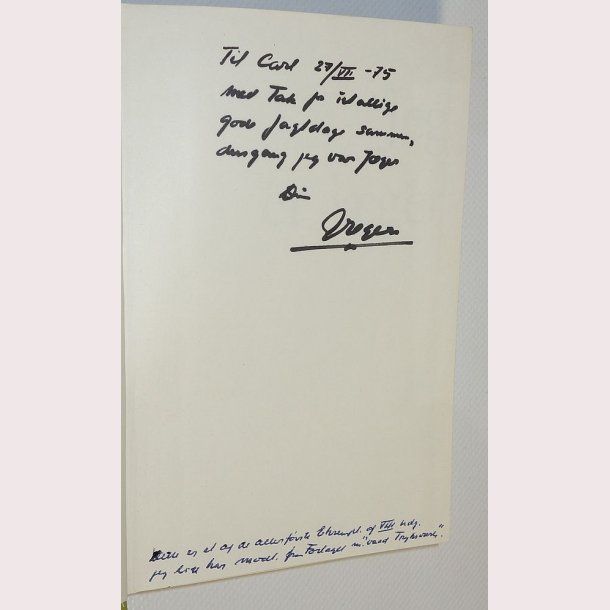 Til Carl 27/VII -75
med Tak for utallige
gode Jagtdage sammen,
dengang jeg var Jæger
Din
Dette er et af de allerførste Eksempl. af VIII udg.
jeg lige har modt. fra Forlaget m. "vaad Tryksværte".